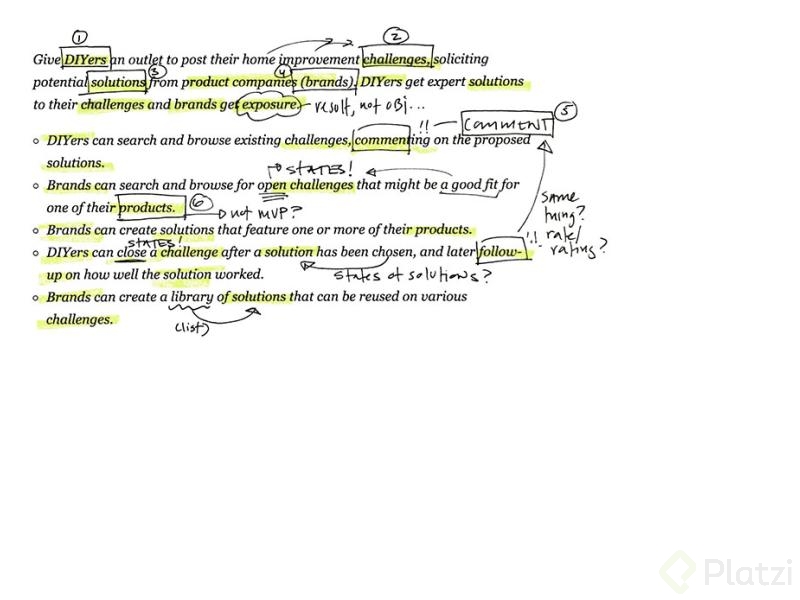 ① ②
Give DIYers an outlet to post their home improvement challenges, soliciting
③ ④
potential solutions from product companies (brands). DIYers get expert solutions
to their challenges and brands get exposure. - result, not obj...
!! - COMMENT ⑤
DIYers can search and browse existing challenges, commenting on the proposed
solutions.
STATES!
Brands can search and browse for open challenges that might be a good fit for
one of their products. ⑥
not MVP?
SAME
thing?
rate/
rating?
Brands can create solutions that feature one or more of their products.
STATES! !!
DIYers can close a challenge after a solution has been chosen, and later follow-
up on how well the solution worked. States of solutions?
Brands can create a library of solutions that can be reused on various
challenges. (list)
Platzi